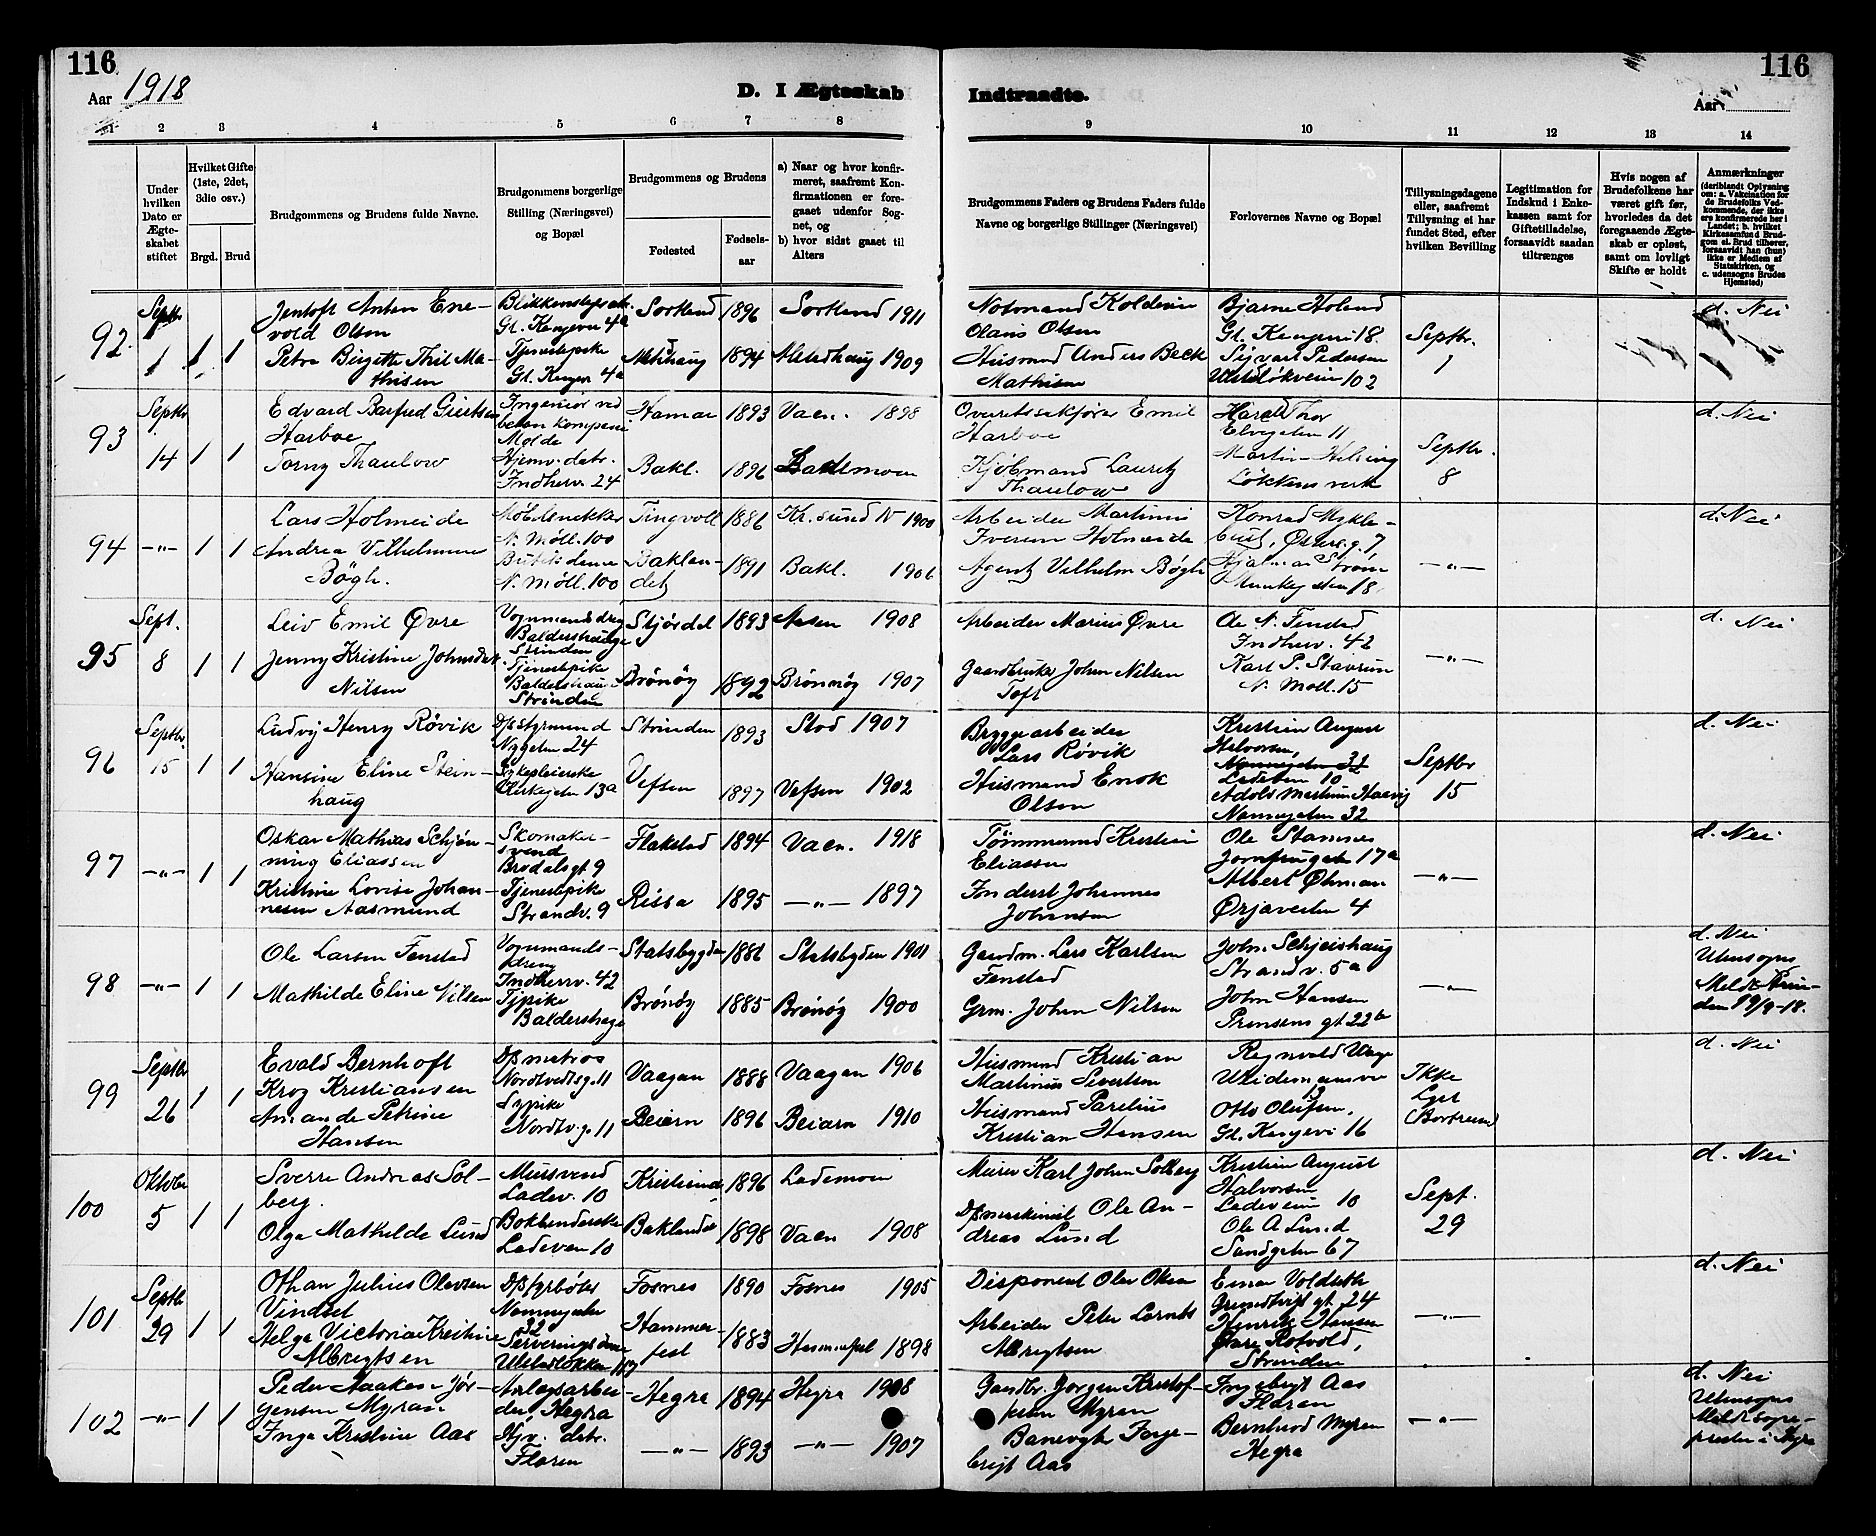 116
116
Aar 1918
D. I Ægteskab
Indtraadte.
Aar
1 2 3 4 5 6 7 8 9 10 11 12 13 14
Under hvilken Dato er Ægteskabet stiftet
Hvilket Gifte (1ste, 2det, 3die osv.)
Brgd. Brud
Brudgommens og Brudens fulde Navne.
Brudgommens borgerlige Stilling (Næringsvei) og Bopæl
Brudgommens og Brudens
Fødested
Fødselsaar
a) Naar og hvor konfirmeret, saafremt Konfirmationen er foregaaet udenfor Sognet, og
b) hvor sidst gaaet til Alters
Brudgommens Faders og Brudens Faders fulde Navne og borgerlige Stillinger (Næringsvei)
Forlovernes Navne og Bopæl
Tillysningsdagene eller, saafremt Tillysning ei har fundet Sted, efter hvilken Bevilling
Legitimation for Indskud i Enkekassen samt for Giftetilladelse, forsaavidt saadan tiltrænges
Hvis nogen af Brudefolkene har været gift før, hvorledes da det foregaaende Ægteskab er opløst, samt om lovligt Skifte er holdt
Anmærkninger
(deriblandt Oplysning om: a. Vakcination for de Brudefolks Vedkommende, der ikke ere konfirmerede her i Landet; b. hvilket Kirkesamfund Brudgom el. Brud tilhører, forsaavidt han (hun) ikke er Medlem af Statskirken, og c. udensogns Brudes Hjemsted)
92.
Septbr.
1
1 1
Jentoft Anton Enevold Olsen
Gl. Kongevei 4a
1896
1911
Petra Birgitte Thil Mathisen
Tjenestepike
Gl. Kongev. 4a
1894
Alstadhaug 1909
Olaus Olsen
Husmand Anders Beck
Mathisen
Gl. Kongevei 18.
Sigvart Pedersen
102
Septbr.
1
d. Nei
93
Septbr
14
1 1
Edvard Barfred Giertsen
Harboe
Ingeniør ved
Molde
Hamar
1893
Vaen. 1898
Torny Thaulow
Hjemv. datr.
Indherv. 24
Bakl.
1896
Lademoen
Overretssakfører Emil
Harboe
Kjøbmand Lauritz
Thaulow
Harald Thor
Elvegaten 11
Løkkens verk
Septbr.
8
d. Nei
94
-"-
1 1
Lars Holmeide
Møbelsnekker
N. Møll. 100
Tingvoll
1886
Kr.sund N 1900
Andrea Vilhelmine
Bøgh.
Butiksdame
N. Møll. 100
Baklandet
1891
Bakl. 1906
Arbeider Martinus
Iversen Holmeide
Agent Vilhelm Bøgh
Konrad Mykle-
bust, Østers.g. 7
Hjalmar Strøm
Munkegaten 18.
-"-
d. Nei
95
Sept.
8
1 1
Leiv Emil Øvre
Vognmandsdreng
Baldershauge
Strinden
Stjørdal
1893
Aasen 1908
Jenny Kristine Johnsdat.
Nilsen
Tjenestepike
Baldershaug
Strinden
Brønøy
1892
Brønnøy 1907
Arbeider Marius Øvre
Gaardbruker Johan Nilsen
Toft
Ole N. Fenstad
Indherv. 42
Karl P. Stavrum
N. Møll. 15
-"-
d. Nei
96
Septbr.
15
1 1
Ludvig Henry Røvik
D/s styrmand
Nygaten 24
Strinden
1893
Stod 1907
Hansine Eline Stein-
haug
Sykepleierske
13a
Vefsen
1897
Vefsen 1902
Bryggearbeider
Lars Røvik
Husmand Enok
Olsen
Kristian August
Halvorsen,
Nannegaten 32
Ladeveien 10
Adolf Martin
Nannegaten 32
Septbr
15
d. Nei
97
-"-
1 1
Oskar Mathias Schjøn-
ning Eliassen
Skomaker-
svend
Brodalsgt 9
Flakstad
1894
Vaen. 1918
Kristine Lovise Johan-
nesen Aasmund
Tjenestepike
Strandv. 9
Rissa
1895
-"- 1897
Tømmermand Kristian
Eliassen
Inderst Johannes
Johansen
Ole Stamnes
Jomfrugaten 17a
Albert Øhman
Ørjaveiten 4
-"-
d. Nei
98
-"-
1 1
Ole Larsen Fenstad
Vognmands-
dreng
Indherv. 42
Statsbygden
1886
Statsbyden 1901
Mathilde Eline Nilsen
Tjpike
Baldershage
Brønøy
1885
Brønøy 1900
Gaardm. Lars Karlsen
Fenstad
Grm. Johan Nilsen
Strandv. 5a
John Hansen
Prinsens gt 22b
-"-
d. Nei
Utensogns
Meldt Strin-
den 19/9-18.
99
Septbr
26
1 1
Evald Bernhoft
Krog Kristiansen
D/s matros
Nordtvedtsg. 11
Vaagan
1888
Vaagan 1906
Amanda Petrine
Hansen
Sypike
Nordtv.g. 11
Beiern
1896
Beiarn 1910
Husmand Kristian
Martinus Sivertsen
Husmand Parelius
Kristian Hansen
Otto Olufsen,
Gl. Kongevei 16
Ikke
Lyst
d. Nei
100
Oktober
5
1 1
Sverre Andreas Sol-
berg.
Mursvend
Ladev. 10
1896
Lademoen
Olga Mathilde Lund
Bokbinderske
Ladeveien 10
Baklandet
1898
Vaen 1908
Murer Karl Johan Solberg
D/s maskinist Ole An-
dreas Lund
Kristian August
Halvorsen
Ladeveien 10
Ole A Lund
Sandgaten 67
Sept.
29
d. Nei
101
Septbr
29
1 1
Othan Julius Olavsen
Vindset
D/s fyrbøter
Nannegaten
32
Fosnes
1890
Fosnes 1905
Helga Victoria Kristine
Albrigtsen
Serveringsdame
Hammer-
fest
1883
Hammerfest 1898
Disponent Olav Olsen
Arbeider Peter Lornts
Albrigtsen
Einar Voldseth
Grundtvigs gt. 24
Henrik Hansen
Øvre Rotvold,
Strinden
-"-
d. Nei
102
-"-
1 1
Peder Haakon Jør-
gensen Myran
Anlægsarbei-
der Hegra
Hegra
1894
Hegra 1908
Inga Kristine Aas
Hjv. datr.
Floren
-"-
1893
-"- 1907
Gaardbr. Jørgen Kristof-
fersen Myran
Banevogter Inge-
brigt Aas
Ingebrigt Aas
Floren
Bernhard Myran
Hegra
-"-
d. Nei
Utensogns
Meldt sogne-
presten i Hegra